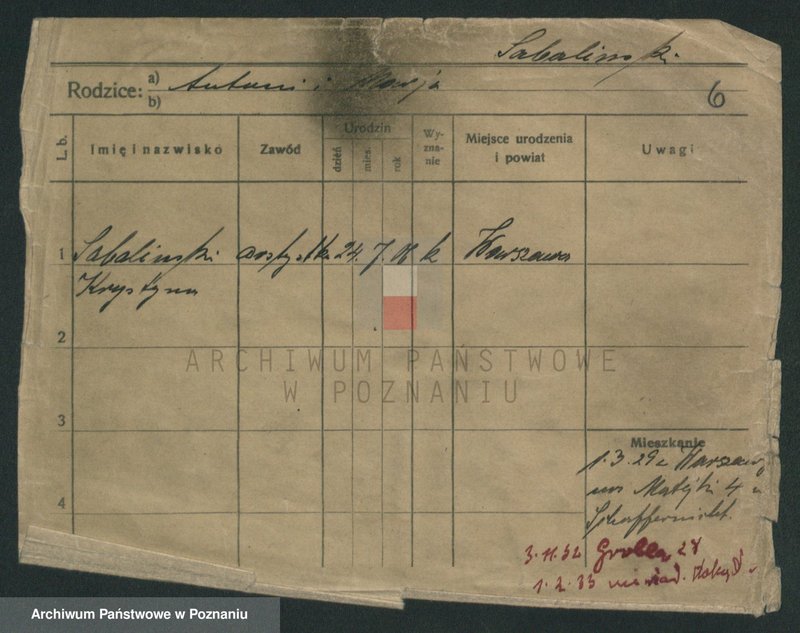 Sabalinski
Rodzice: a) Antoni i Marja
b)
6
L. b.
Imię i nazwisko
Zawód
Urodzin
dzień
mies.
rok
Wy-
zna-
nie
Miejsce urodzenia
i powiat
Uwagi
1 Sabalinski artystka 24. 7. k Warszawa
Krystyna
2
ARCHIWUM PAŃSTWOWE
W POZNANIU
3
Mieszkanie
1.3.29 z Warszawy
Matejki 4
4
3.11.32 Grobla 28
1.2.33
Archiwum Państwowe w Poznaniu